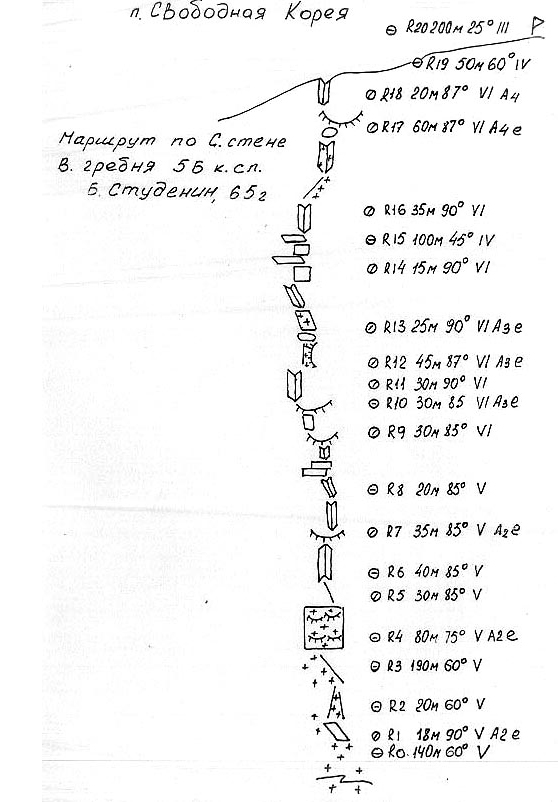 п. Свободная Корея
R20 200м 25° III
R19 50м 60° IV
R18 20м 87° VI A4
R17 60м 87° VI A4 e
Маршрут по С. стене
В. гребня 5Б к.сл.
Б. Студенин, 65г
R16 35м 90° VI
R15 100м 45° IV
R14 15м 90° VI
R13 25м 90° VI A3 e
R12 45м 87° VI A3 e
R11 30м 90° VI
R10 30м 85 VI A3 e
R9 30м 85° VI
R8 20м 85° V
R7 35м 85° V A2 e
R6 40м 85° V
R5 30м 85° V
R4 80м 75° V A2 e
R3 190м 60° V
R2 20м 60° V
R1 18м 90° V A2 e
R0. 140м 60° V